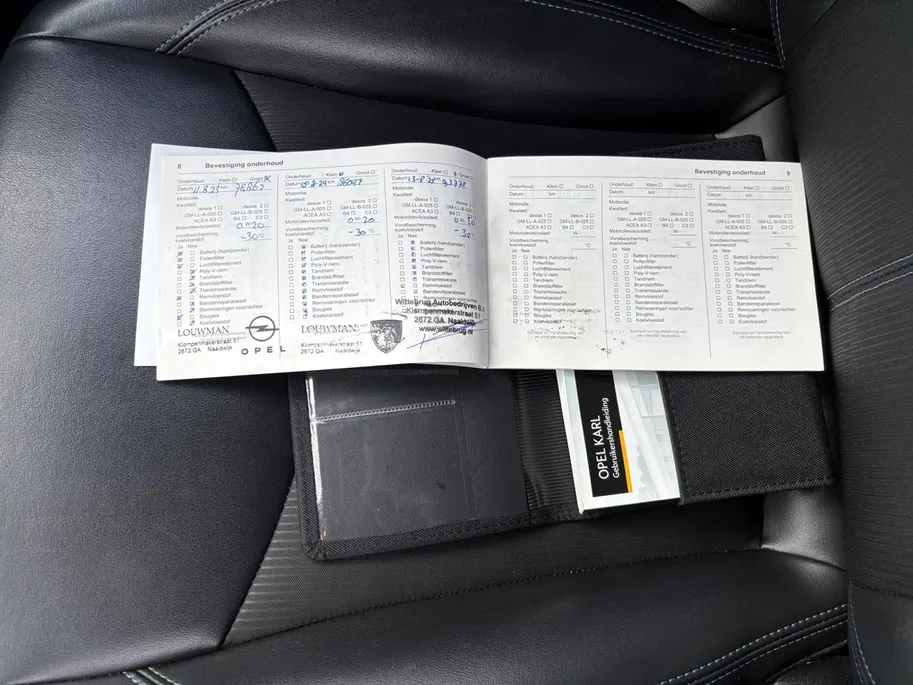 8 Bevestiging onderhoud
Onderhoud: Klein Groot
Datum 11.8.23 km 78862
Motorolie
Kwaliteit:
dexos 1 dexos 2
GM-LL-A-025 GM-LL-B-025
ACEA A3 B4 C3
Motorolieviscositeit: 0 W 20
Vorstbescherming
koelvloeistof -30 °C
Ja Nee
Batterij (handzender)
Pollenfilter
Luchtfilterelement
Poly-V-riem
Tandriem
Brandstoffilter
Transmissieolie
Remvloeistof
Bandenreparatieset
Remvoeringen voor/achter
Bougies
Koelvloeistof
LOUWMAN
Klompenmakerstraat 51
2672 GA Naaldwijk
OPEL
Onderhoud: Klein Groot
Datum km
Motorolie
Kwaliteit:
dexos 1 dexos 2
GM-LL-A-025 GM-LL-B-025
ACEA A3 B4 C3
Motorolieviscositeit: 0 W 20
Vorstbescherming
koelvloeistof -30 °C
Ja Nee
Batterij (handzender)
Pollenfilter
Luchtfilterelement
Poly-V-riem
Tandriem
Brandstoffilter
Transmissieolie
Remvloeistof
Bandenreparatieset
Remvoeringen voor/achter
Bougies
Koelvloeistof
LOUWMAN
Klompenmakerstraat 51
2672 GA Naaldwijk
Onderhoud: Klein Groot
Datum km
Motorolie
Kwaliteit:
dexos 1 dexos 2
GM-LL-A-025 GM-LL-B-025
ACEA A3 B4 C3
Motorolieviscositeit: 0 W 20
Vorstbescherming
koelvloeistof -30 °C
Ja Nee
Batterij (handzender)
Pollenfilter
Luchtfilterelement
Poly-V-riem
Tandriem
Brandstoffilter
Transmissieolie
Remvloeistof
Bandenreparatieset
Remvoeringen voor/achter
Wittebrug Autobedrijven B.V.
Klompenmakerstraat 51
2672 GA Naaldwijk
www.wittebrug.nl
Bevestiging onderhoud 9
Onderhoud: Klein Groot
Datum km
Motorolie
Kwaliteit:
dexos 1 dexos 2
GM-LL-A-025 GM-LL-B-025
ACEA A3 B4 C3
Motorolieviscositeit: W-
Vorstbescherming
koelvloeistof °C
Ja Nee
Batterij (handzender)
Pollenfilter
Luchtfilterelement
Poly-V-riem
Tandriem
Brandstoffilter
Transmissieolie
Remvloeistof
Bandenreparatieset
Remvoeringen voor/achter
Bougies
Koelvloeistof
Stempel en handtekening van
de erkende reparateur
Onderhoud: Klein Groot
Datum km
Motorolie
Kwaliteit:
dexos 1 dexos 2
GM-LL-A-025 GM-LL-B-025
ACEA A3 B4 C3
Motorolieviscositeit: W-
Vorstbescherming
koelvloeistof °C
Ja Nee
Batterij (handzender)
Pollenfilter
Luchtfilterelement
Poly-V-riem
Tandriem
Brandstoffilter
Transmissieolie
Remvloeistof
Bandenreparatieset
Remvoeringen voor/achter
Bougies
Koelvloeistof
Stempel en handtekening van
de erkende reparateur
Onderhoud: Klein Groot
Datum km
Motorolie
Kwaliteit:
dexos 1 dexos 2
GM-LL-A-025 GM-LL-B-025
ACEA A3 B4 C3
Motorolieviscositeit: W-
Vorstbescherming
koelvloeistof °C
Ja Nee
Batterij (handzender)
Pollenfilter
Luchtfilterelement
Poly-V-riem
Tandriem
Brandstoffilter
Transmissieolie
Remvloeistof
Bandenreparatieset
Remvoeringen voor/achter
Bougies
Koelvloeistof
Stempel en handtekening van
de erkende reparateur
OPEL KARL
Gebruikershandleiding